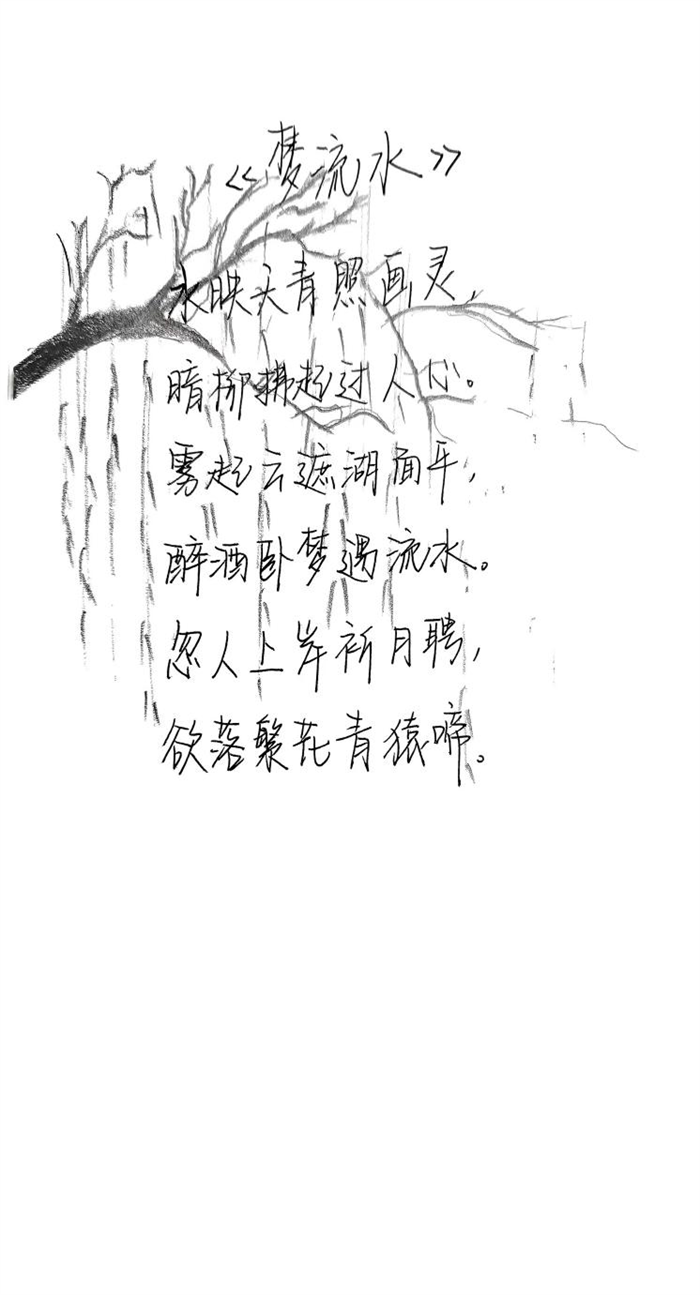 《梦流水》
水映天青照画灵，
暗柳拂起过人心。
雾起云遮湖面平，
醉酒卧梦遇流水。
忽人上岸祈月聘，
欲落繁花青猿啼。